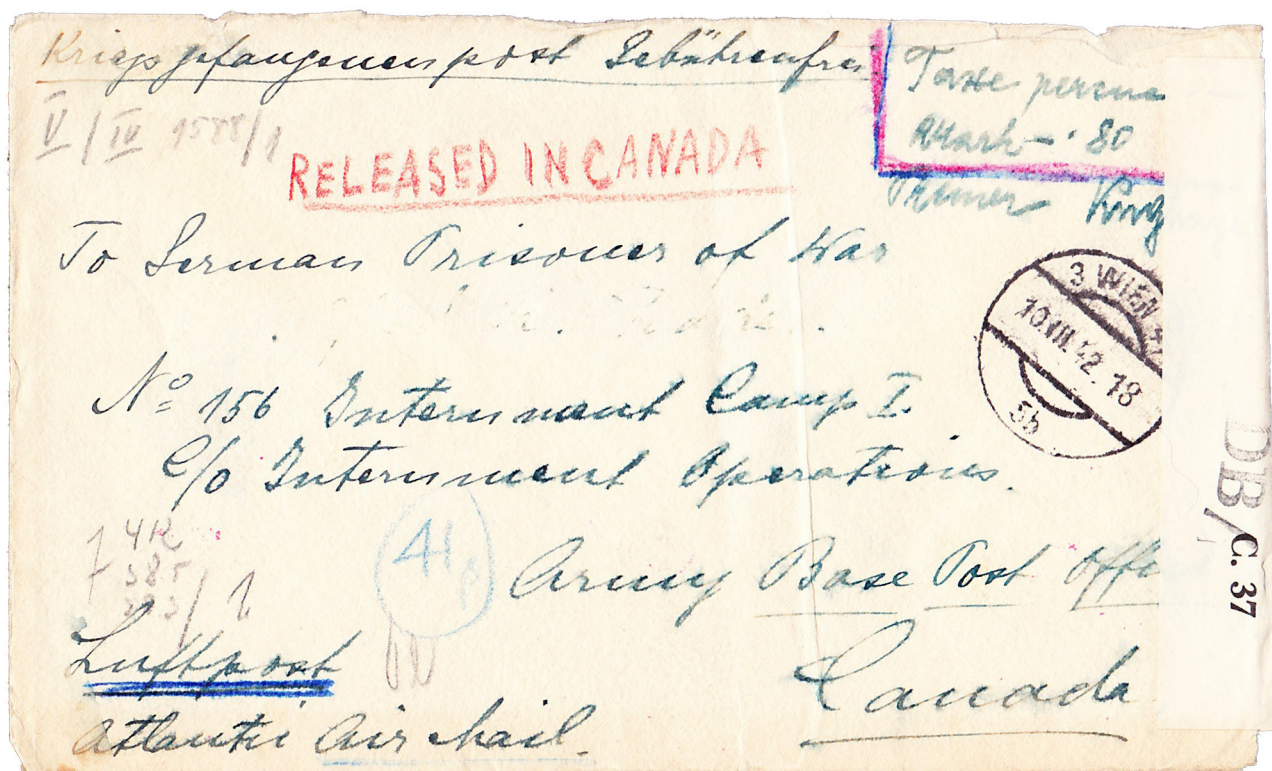 Kriegsgefangenenpost Gebührenfrei
Taxe percue
Mark -.80
V/IV 1588/1
RELEASED IN CANADA
To German Prisoner of War
3 WIEN
10.VIII.42.18
5b
No 156 Internment Camp I.
C/o Internment Operations.
DB/C. 37
41
Army Base Post Offi
Luftpost
Canada
Atlantic Air Mail.